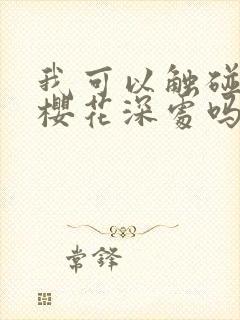 我可以触碰
樱花深处吗
常鋒